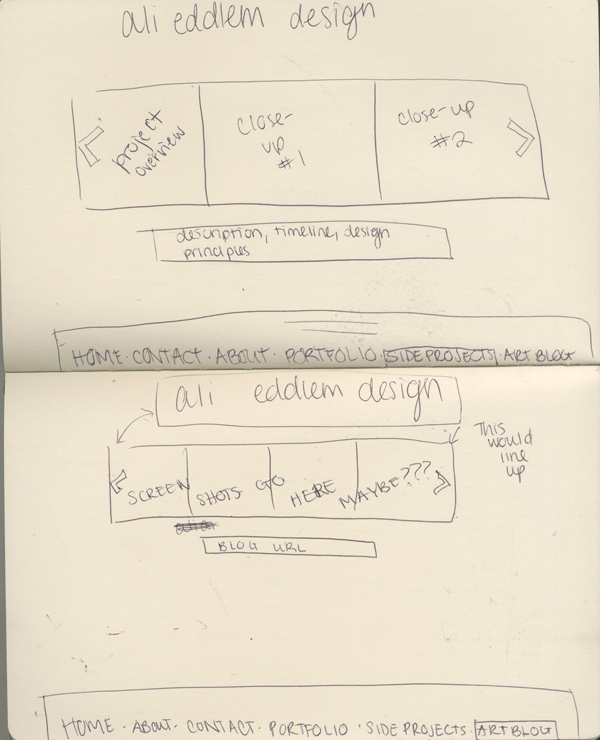 ali eddlem design
project
overview
close-
up
#1
close-up
#2
description, timeline, design
principles
HOME · CONTACT · ABOUT · PORTFOLIO · SIDE PROJECTS · ART BLOG
ali eddlem design
This
would
line
up
SCREEN SHOTS GO HERE MAYBE???
BLOG URL
HOME · ABOUT · CONTACT · PORTFOLIO · SIDE PROJECTS · ART BLOG